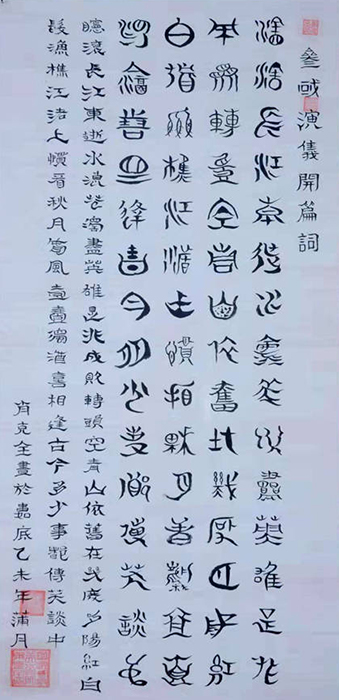 叁國演儀開篇詞
滾滾長江東逝水浪花淘盡英雄是非
成敗轉頭空青山依舊在幾度夕陽紅
白髮漁樵江渚上慣看秋月春風壹壺
濁酒喜相逢古今多少事都付笑談中
滾滾長江東逝水浪花濁盡英雄是非成敗轉頭空青山依舊在幾度夕陽紅白
髮漁樵江渚上慣看秋月春風壹壺濁酒喜相逢古今多少事都付笑談中
肖克全書於嘉底乙未年蒲月